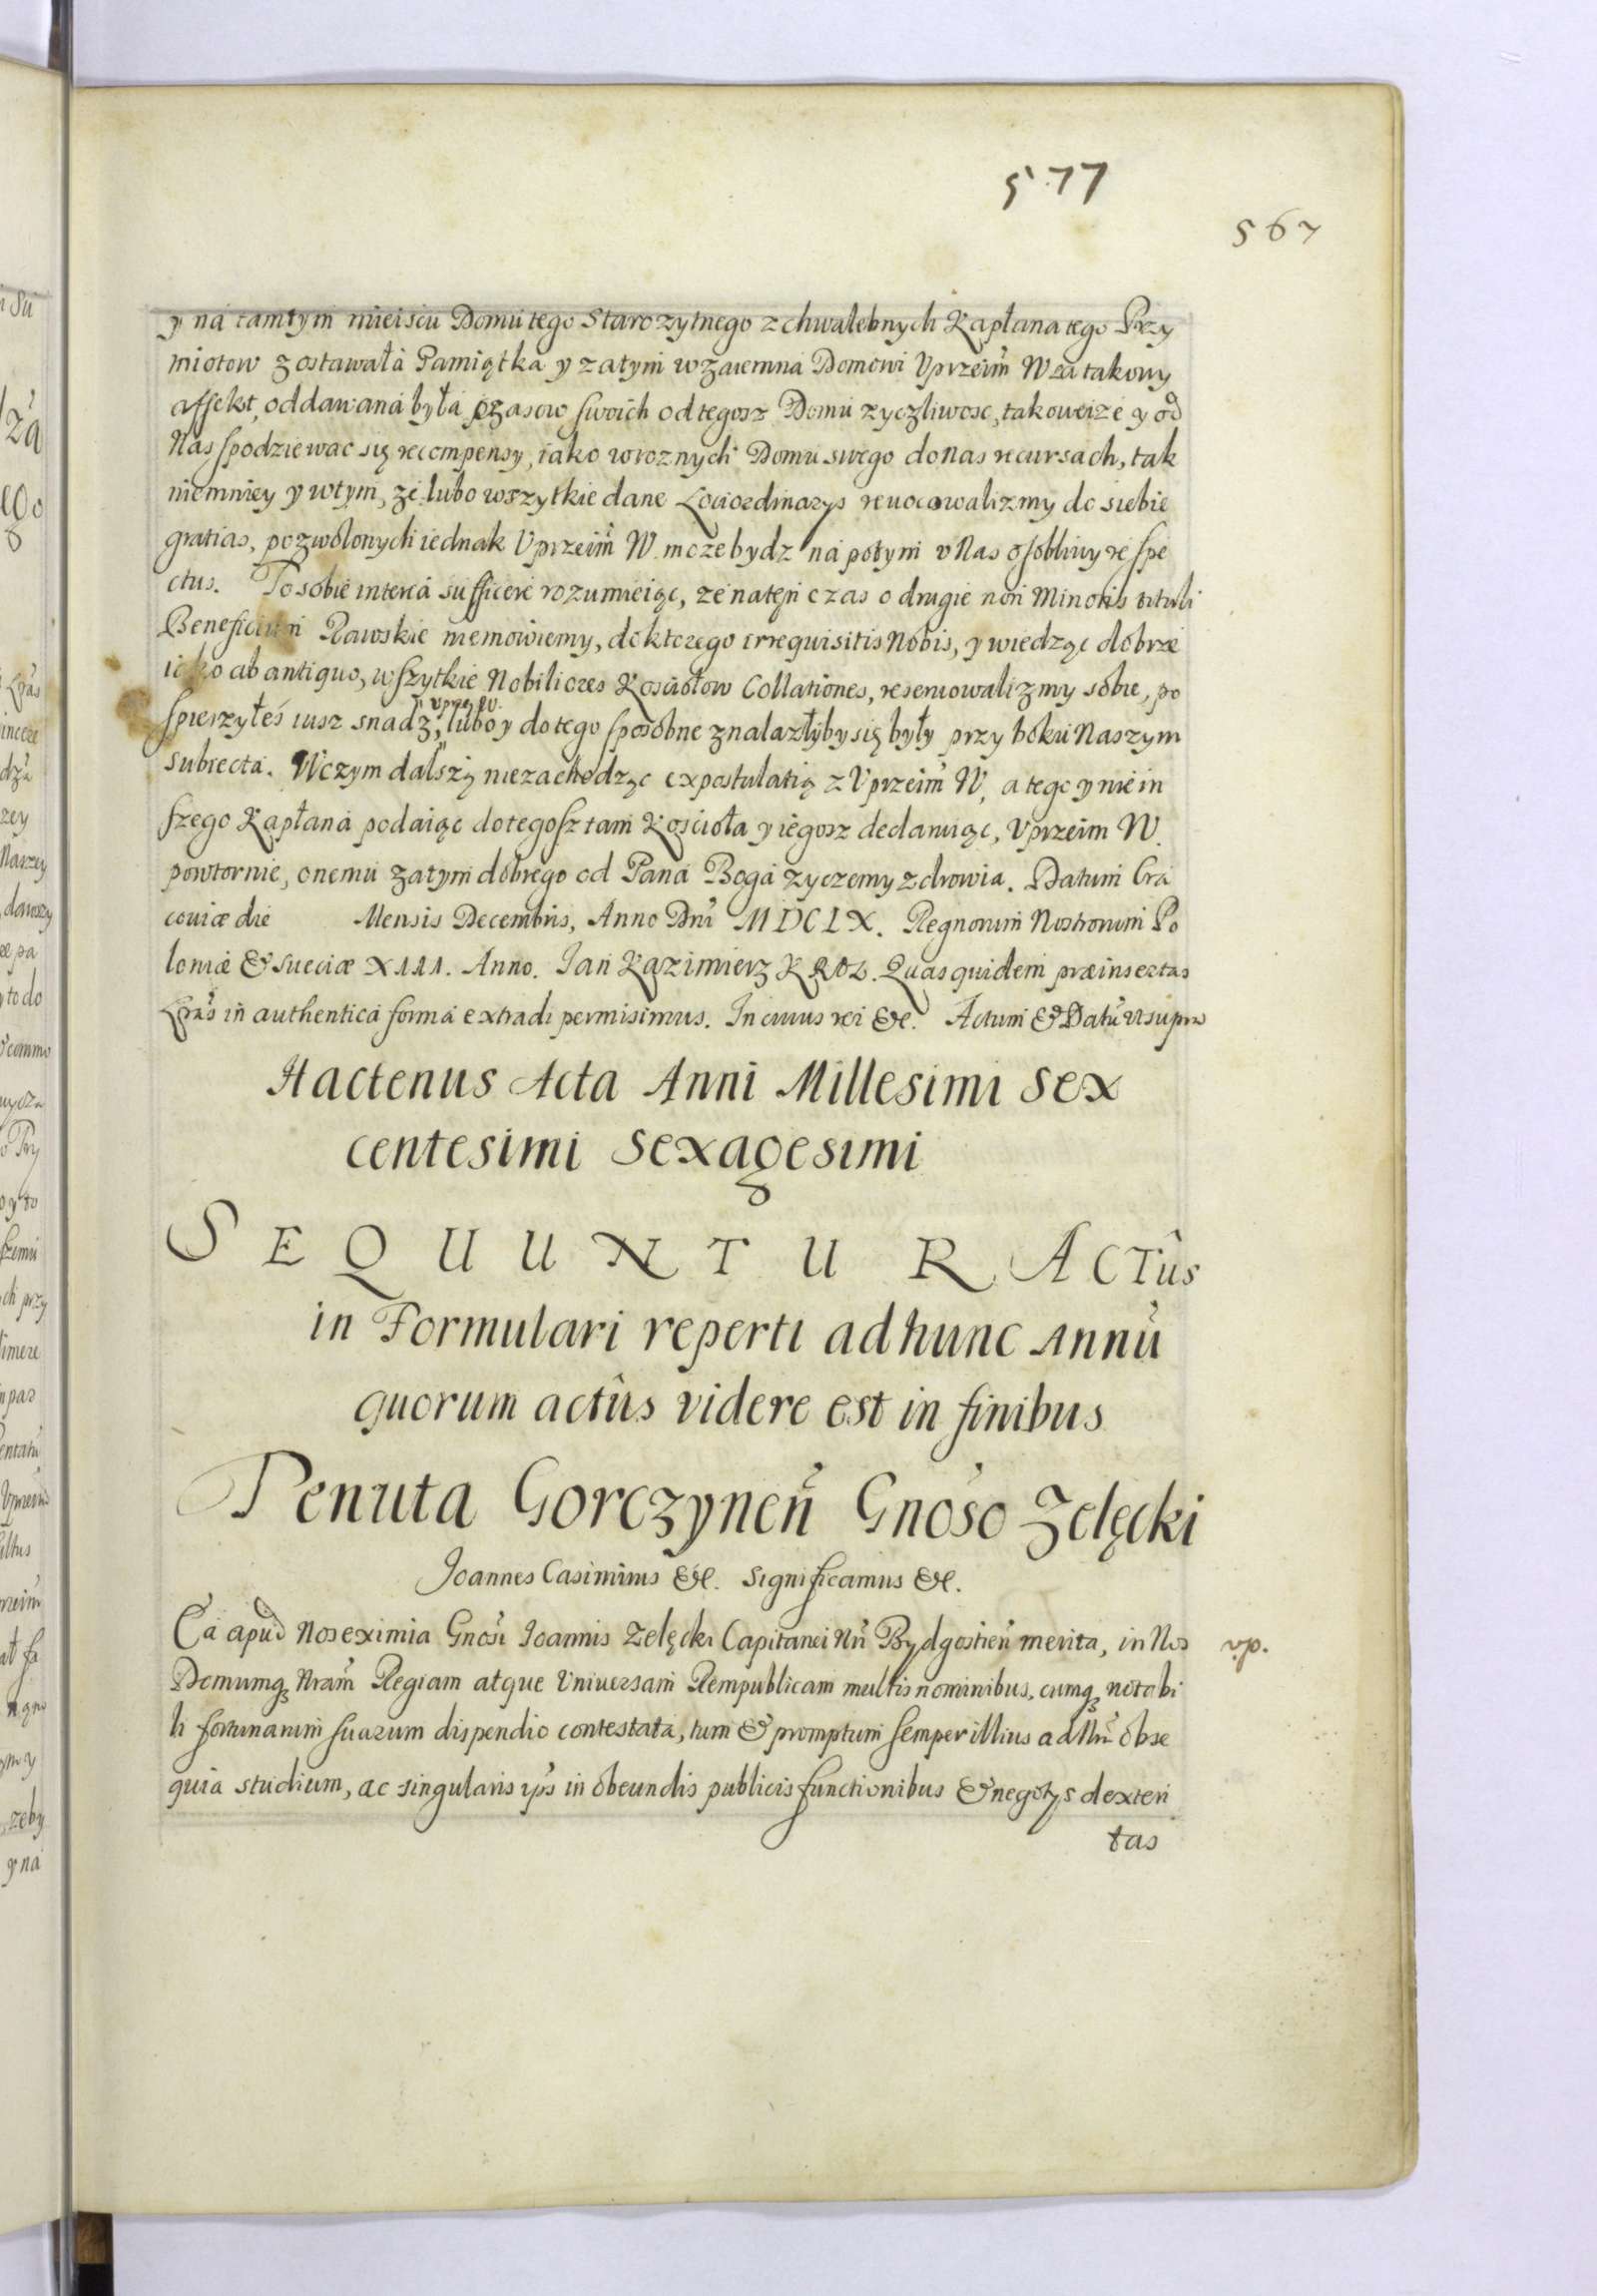 577
567
y na tamtym mieiscu Domu tego Starozytnego z chwalebnych Kapłana tego Przy
miotow zostawała Pamiątka y zatym wzaiemna Domowi Vprzeim̃ W za takowy
affekt, oddawana była czasow swoich od tegosz Domu zyczliwosc, takoweize y od
Nas spodziewac się recompensy, iako w roznych Domu swego do nas recursach, tak
niemniey y w tym, ze lubo wszytkie dane Lociordinarys reuocowalizmy do siebie
gratias, pozwolonych iednak Vprzeim̃ W. moze bydz na potym v Nas osobliwy respe
ctus. To sobie interea sufficere rozumieiąc, ze natęn czas o drugie non Minoris tituli
Beneficium Rawskie niemowiemy, do ktorego irrequisitis Nobis, y wiedząc dobrze
iako ab antiquo, wszytkie Nobiliores Kosciołow Collationes, reseruowalizmy sobie, po
spieszyłes iusz snadz, lubo y do tego sposobne znalazłyby się były przy boku Naszym
subiecta. W czym dalszą niezachodząc expostulatią z Vprzeim̃ W, a tego y nie in
szego Kapłana podaiąc do tegosz tam Kościoła y iegosz declaruiąc, Vprzeim W.
powtornie, onemu zatym dobrego od Pana Boga zyczemy zdrowia. Datum Cra
coviæ die Mensis Decembris, Anno Dnĩ MDCLX. Regnorum Nostrorum Po
loniæ & Sueciæ XIII. Anno. Jan Kazimierz KROL. Quas quidem præinsertas
Lrãs in authentica forma extradi permisimus. In cuius rei &c. Actum & Datũ ut supra
Hactenus Acta Anni Millesimi Sex
centesimi Sexagesimi
SEQUUNTUR ACTûs
in Formulari reperti ad hunc Annũ
quorum actûs videre est in finibus
Tenuta Gorczyneñ Gnoso Zelęcki
Joannes Casimirus &c. Significamus &c.
Ea apud Nos eximia Gnosi Joannis Zelęcki Capitanei Nrĩ Bydgostieñ merita, in Nos
vp.
Domumq̃ Nram̃ Regiam atque Vniuersam Rempublicam multis nominibus, cumq̃ notabi
li fortunarum suarum dispendio contestata, tum & promptum semper illius ad Nrã obse
quia studium, ac singularis ips̃ in obeundis publicis functionibus & negotys dexteri
tas